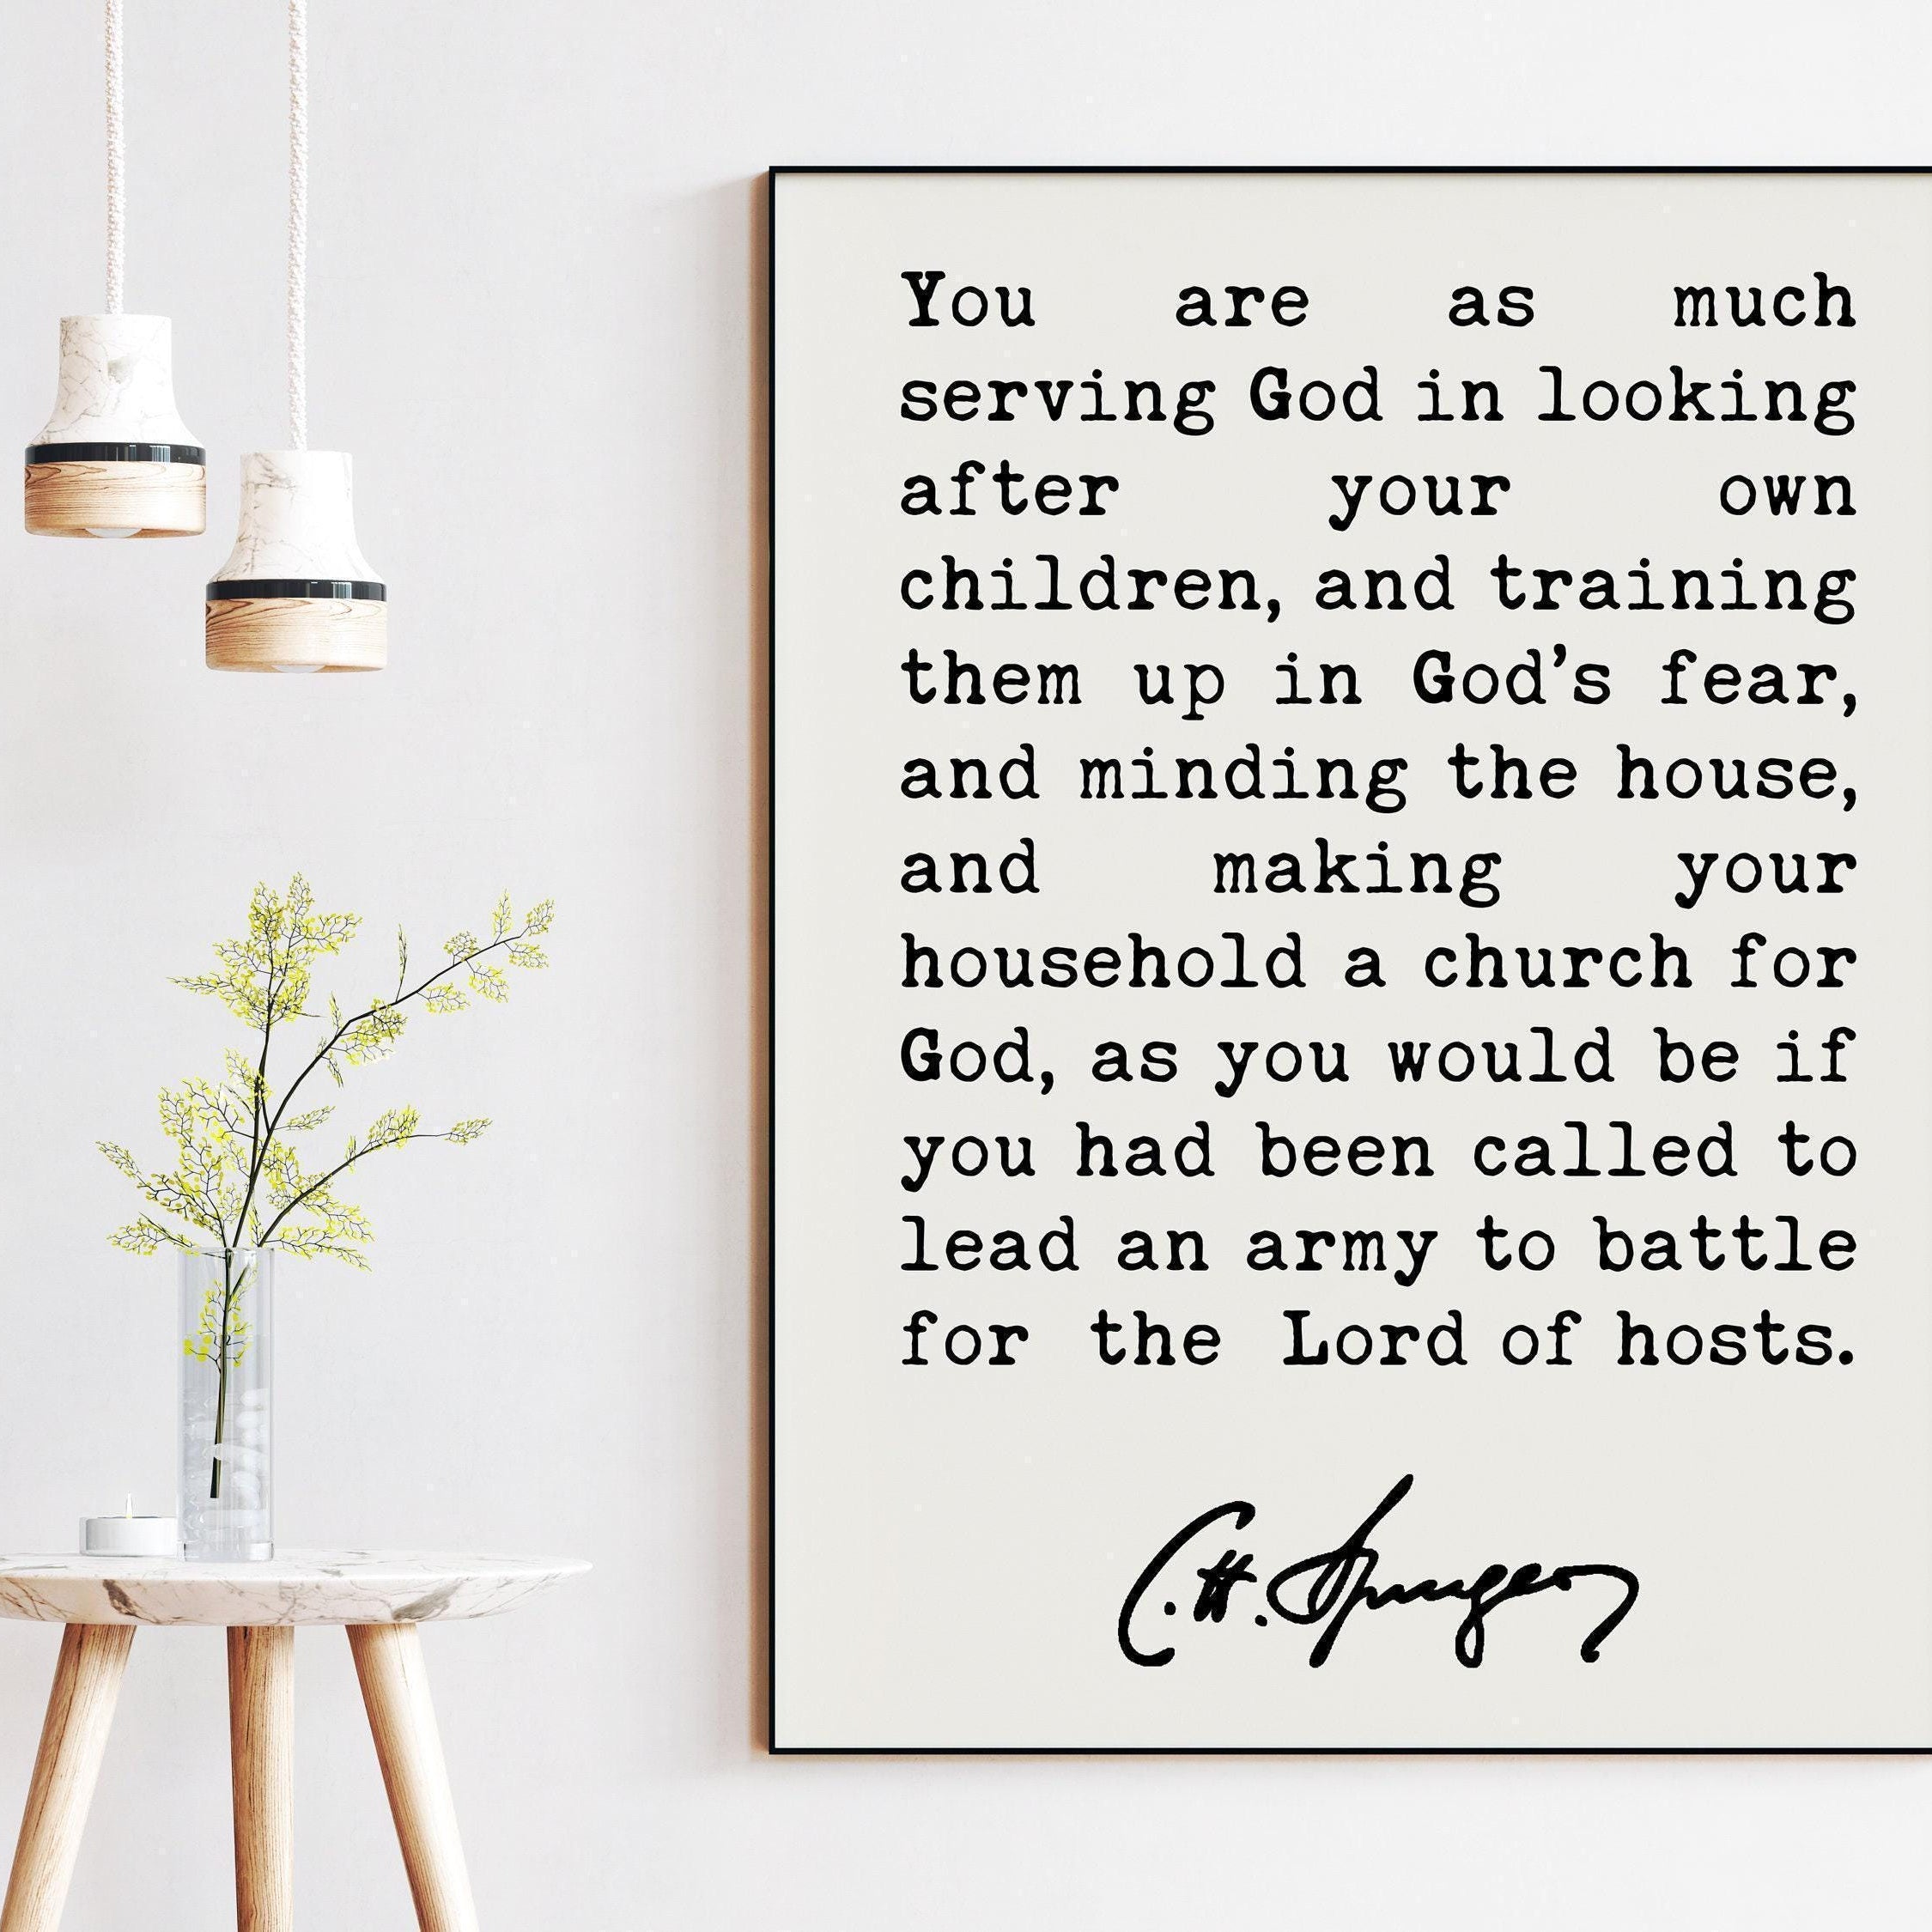 You are as much
serving God in looking
after your own
children, and training
them up in God’s fear,
and minding the house,
and making your
household a church for
God, as you would be if
you had been called to
lead an army to battle
for the Lord of hosts.
C.H. Spurgeon